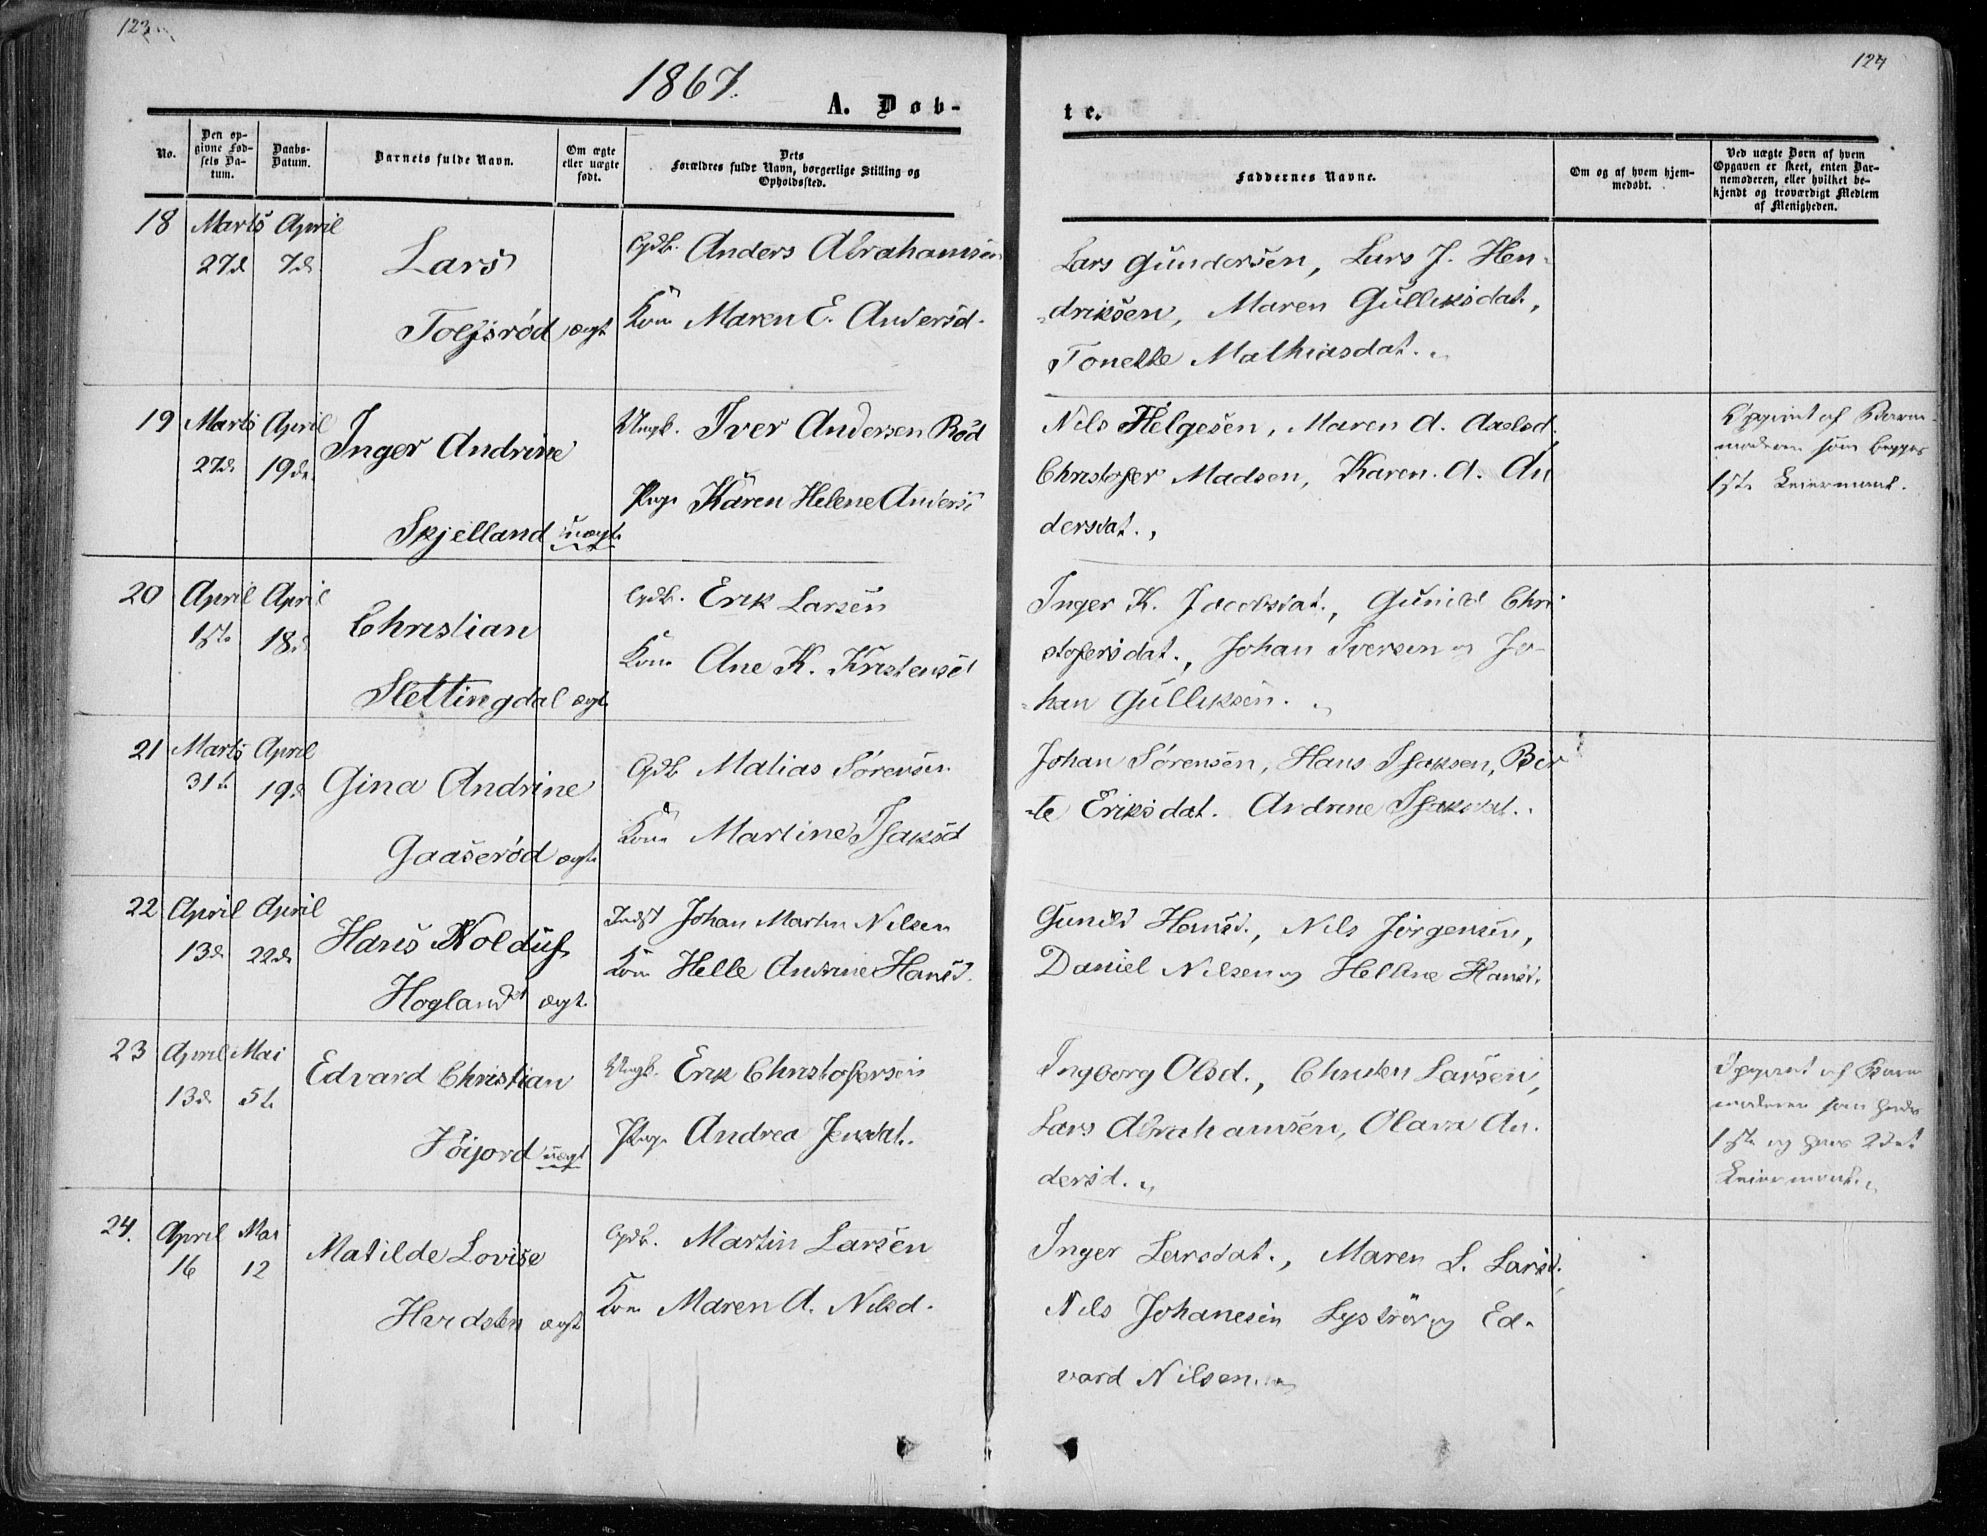 123
124
1867.
A. Døb-
te.
No.
Den op-
givne Fød-
sels Da-
tum.
Daabs-
Datum.
Barnets fulde Navn.
Om ægte
eller uægte
født.
Dets
Forældres fulde Navn, borgerlige Stilling og
Opholdssted.
Faddernes Navne.
Om og af hvem hjem-
medøbt.
Ved uægte Børn af hvem
Opgaven er skeet, enten Bar-
nemoderen, eller hvilket be-
kjendt og troværdigt Medlem
af Menigheden.
18 Marts April
27d 7d Lars
Gdb. Anders Abrahamsen
Tolfsrød ægt
Kone Maren E. Andersd.
Lars Gundersen, Lars J. Hen-
driksen, Maren Gulliksdat.,
Tonette Mathiasdat.
19 Marts April
27d. 19de.
Inger Andrine
Skjelland uægt.
Ungk. Iver Andersen Rød
Pige Karen Helene Anders
Nils Helgesen, Maren A. Axelsd.
Christofer Madsen, Karen A. An
dersdat.,
Opgivet af Barne-
moderen som begges
1ste Leiermaal.
20 April April
1ste 18d
Christian
Slettingdal ægt.
Gdb. Erik Larsen
Kone Ane K. Kristensd
Inger K. Jacobsdat., Gunild Chri
stofersdat., Johan Iversen og Jo-
han Gulliksen.
21 Marts April
31t 19d
Gina Andrine
Gaaserød ægt.
Gdb Matias Sørensen
Kone Martine Isaksd
Johan Sørensen, Hans Isaksen, Bir
te Eriksdat. Andrine Isaksdat.
22 April April
13d 22d
Hans Noldus
Hogland ægt.
Indst Johan Martin Nilsen
Kone Helle Andrine Hansd.
Gunild Hansd., Nils Jörgensen,
Daniel Nilsen og Hellene Hansd.
23 April Mai
13d 5t
Edvard Christian
Höijord uægt
Ungk. Erik Christofersen
Pige Andrea Jensdat.
Ingeborg Olsd., Christen Larsen,
Lars Abrahamsen, Olava An-
dersd.
Opgivet af Barne
moderen som hendes
1ste og hans 2det
Leiermaal.
24. April Mai
16 12
Matilde Lovise
Hardsten ægt
Gdb. Martin Larsen
Kone Maren A. Nilsd.
Inger Larsdat., Maren L. Larsd.
Nils Johanesen og Ed-
vard Nilsen.